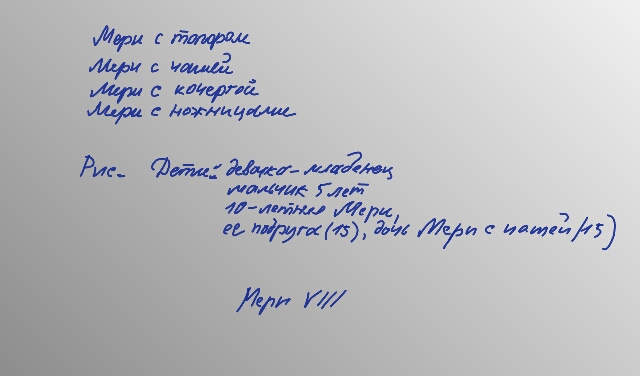 Мери с топором
Мери с чашей
Мери с кочергой
Мери с ножницами
Рис. Дети: девочка-младенец
мальчик 5 лет
10-летняя Мери,
её подруга (15), дочь Мери с чашей (15)
Мери VIII